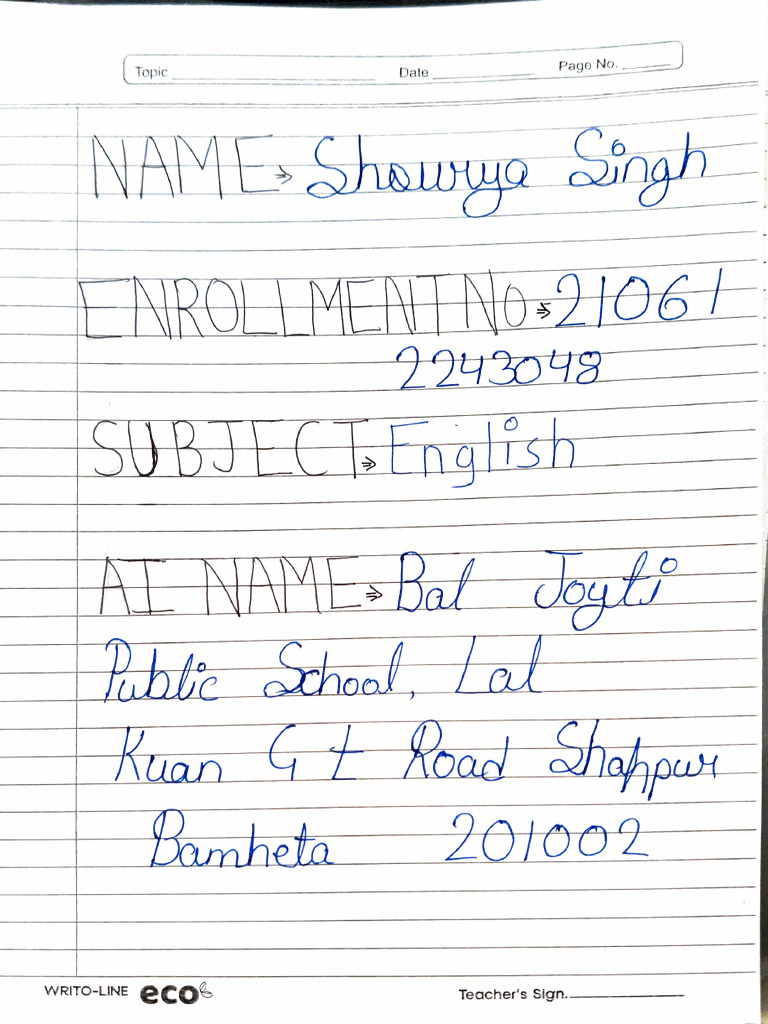 Topic Date Page No.
NAME⇒ Shourya Singh
ENROLLMENT NO⇒ 21061
2243048
SUBJECT⇒ English
AI NAME⇒ Bal Joyti
Public School, Lal
Kuan G t Road Shahpur
Bamheta 201002
WRITO-LINE eco Teacher's Sign.